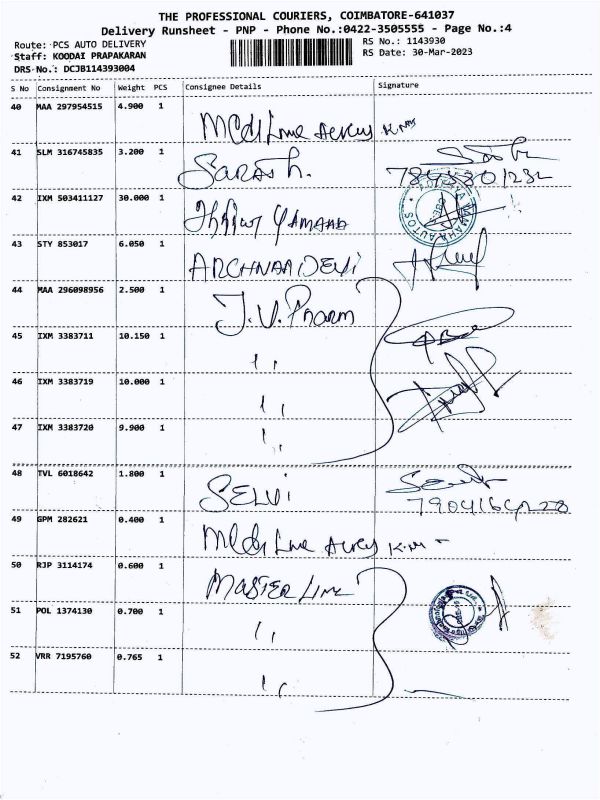 THE PROFESSIONAL COURIERS, COIMBATORE-641037
Delivery Runsheet - PNP - Phone No.:0422-3505555 - Page No.:4
Route: PCS AUTO DELIVERY
RS No.: 1143930
Staff: KOODAI PRAPAKARAN
RS Date: 30-Mar-2023
DRS No.: DCJB114393004
S No Consignment No Weight PCS Consignee Details Signature
40 MAA 297954515 4.900 1
41 SLM 316745835 3.200 1 SARASH.
42 IXM 503411127 30.000 1 YAMAHA
YAMAHA AUTOS
43 STY 853017 6.050 1 ARCHNAA DEVI
44 MAA 296098956 2.500 1 J.V. Pharm
45 IXM 3383711 10.150 1 ,,
46 IXM 3383719 10.000 1 ,,
47 IXM 3383720 9.900 1 ,,
48 TVL 6018642 1.800 1 SELVI
49 GPM 282621 0.400 1
50 RJP 3114174 0.600 1 MASTER LINE
51 POL 1374130 0.700 1 ,,
52 VRR 7195760 0.765 1 ,,